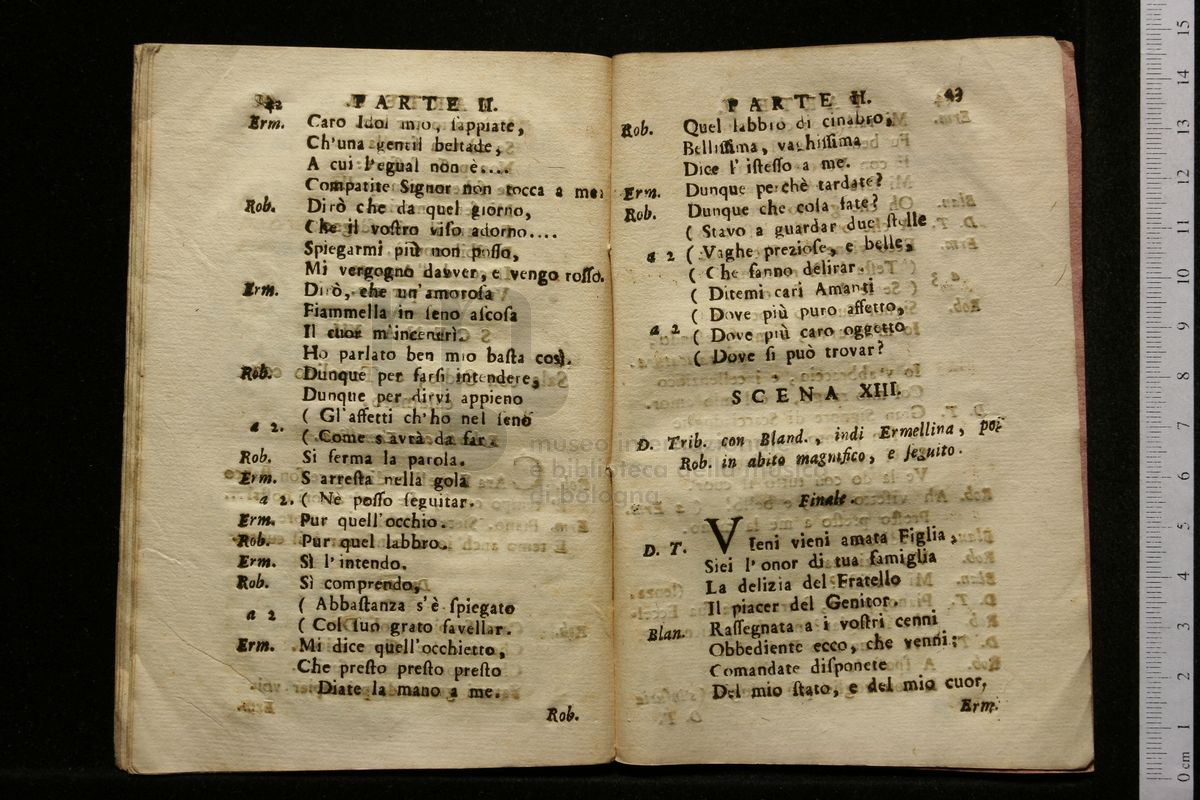 42 PARTE II.
Erm. Caro Idol mio, ſappiate,
Ch'una gentil beltade,
A cui l'egual non è....
Compatite Signor non tocca a me.
Rob. Dirò che da quel giorno,
Che il voſtro viſo adorno....
Spiegarmi più non poſſo,
Mi vergogno davver, e vengo roſſo.
Erm. Dirò, che un'amoroſa
Fiammella in ſeno aſcoſa
Il cuor m'incenerì.
Ho parlato ben mio baſta così.
Rob. Dunque per farſi intendere,
Dunque per dirvi appieno
( Gl'affetti ch'ho nel ſeno
a 2.
( Come s'avrà da far.
Rob. Si ferma la parola.
Erm. S'arreſta nella gola
a 2. ( Nè poſſo ſeguitar.
Erm. Pur quell'occhio.
Rob. Pur quel labbro.
Erm. Sì l'intendo.
Rob. Sì comprendo,
( Abbaſtanza s'è ſpiegato
a 2
( Col ſuo grato favellar.
Erm. Mi dice quell'occhietto,
Che preſto preſto preſto
Diate la mano a me.
Rob.
PARTE II. 43
Rob. Quel labbro di cinabro,
Belliſſima, vaghiſſima
Dice l'iſteſſo a me.
Erm. Dunque perchè tardate?
Rob. Dunque che coſa fate?
( Stavo a guardar due ſtelle
a 2 ( Vaghe prezioſe, e belle,
( Che fanno delirar.
( Ditemi cari Amanti
( Dove più puro affetto,
a 2 ( Dove più caro oggetto
( Dove ſi può trovar?
SCENA XIII.
D. Trib. con Bland., indi Ermellina, poi
Rob. in abito magnifico, e ſeguito.
Finale.
D. T. Vieni vieni amata Figlia,
Siei l'onor di tua famiglia
La delizia del Fratello
Il piacer del Genitor.
Blan. Raſſegnata a i voſtri cenni
Obbediente ecco, che venni:
Comandate diſponete
Del mio ſtato, e del mio cuor,
Erm.
museo internazionale
e biblioteca della musica
di bologna
0 cm 1 2 3 4 5 6 7 8 9 10 11 12 13 14 15